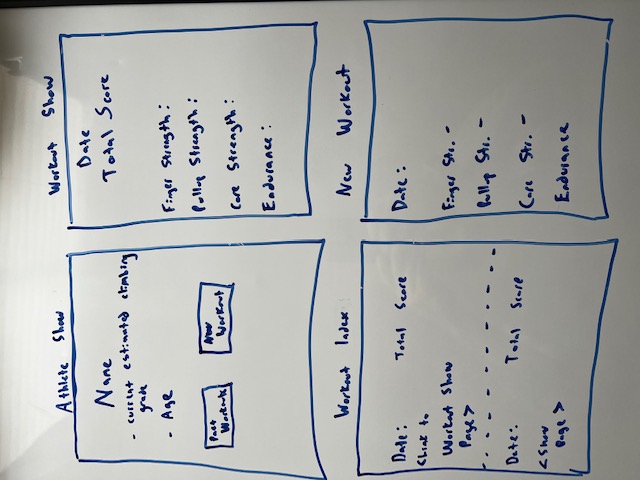 Athlete Show
Name
- current estimated climbing
grade
- Age
Past
Workouts
New
Workout
Workout Show
Date
Total Score
Finger Strength:
Pullup Strength:
Core Strength:
Endurance:
Workout Index
Date: Total Score
<Link to
Workout Show
Page>
Date: Total Score
<Show
Page>
New Workout
Date:
Finger Str. -
Pullup Str. -
Core Str. -
Endurance